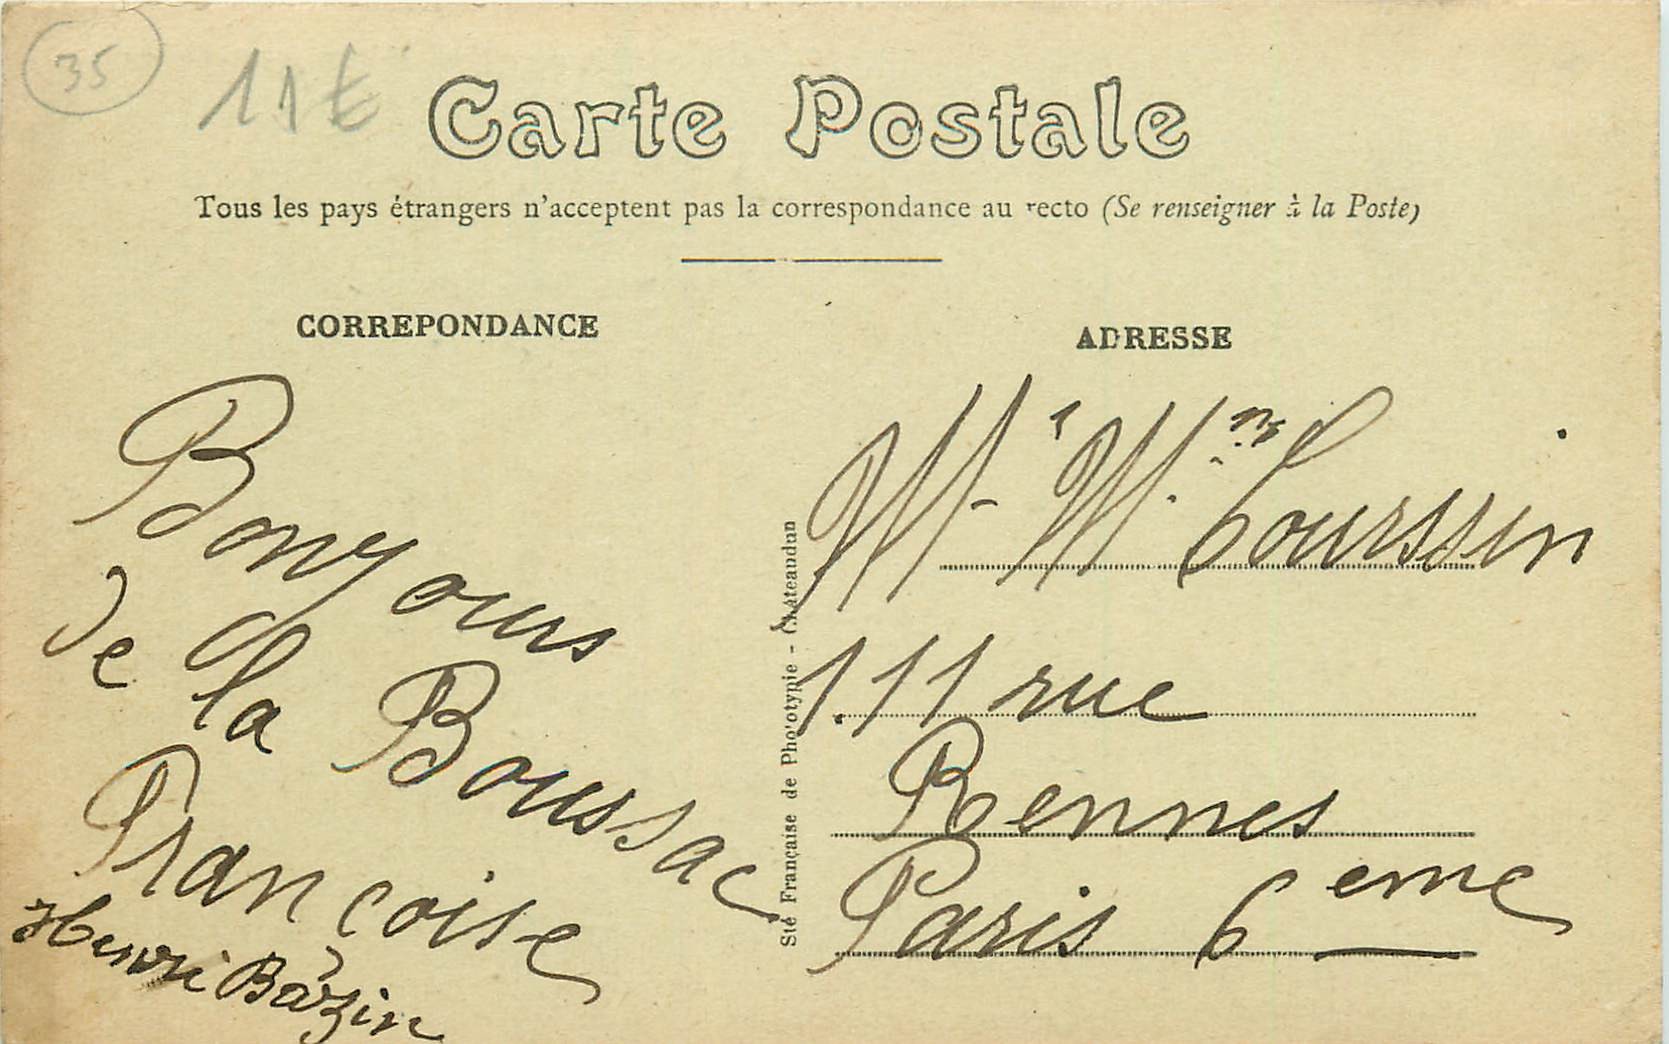 35
11€
Carte Postale
Tous les pays étrangers n'acceptent pas la correspondance au recto (Se renseigner à la Poste)
CORREPONDANCE
Bonjours
de la Boussac
Françoise
Henri Bazin
Sté Française de Phototypie - Châteaudun
ADRESSE
Mr Mme Courssin
111 rue
Rennes
Paris 6eme